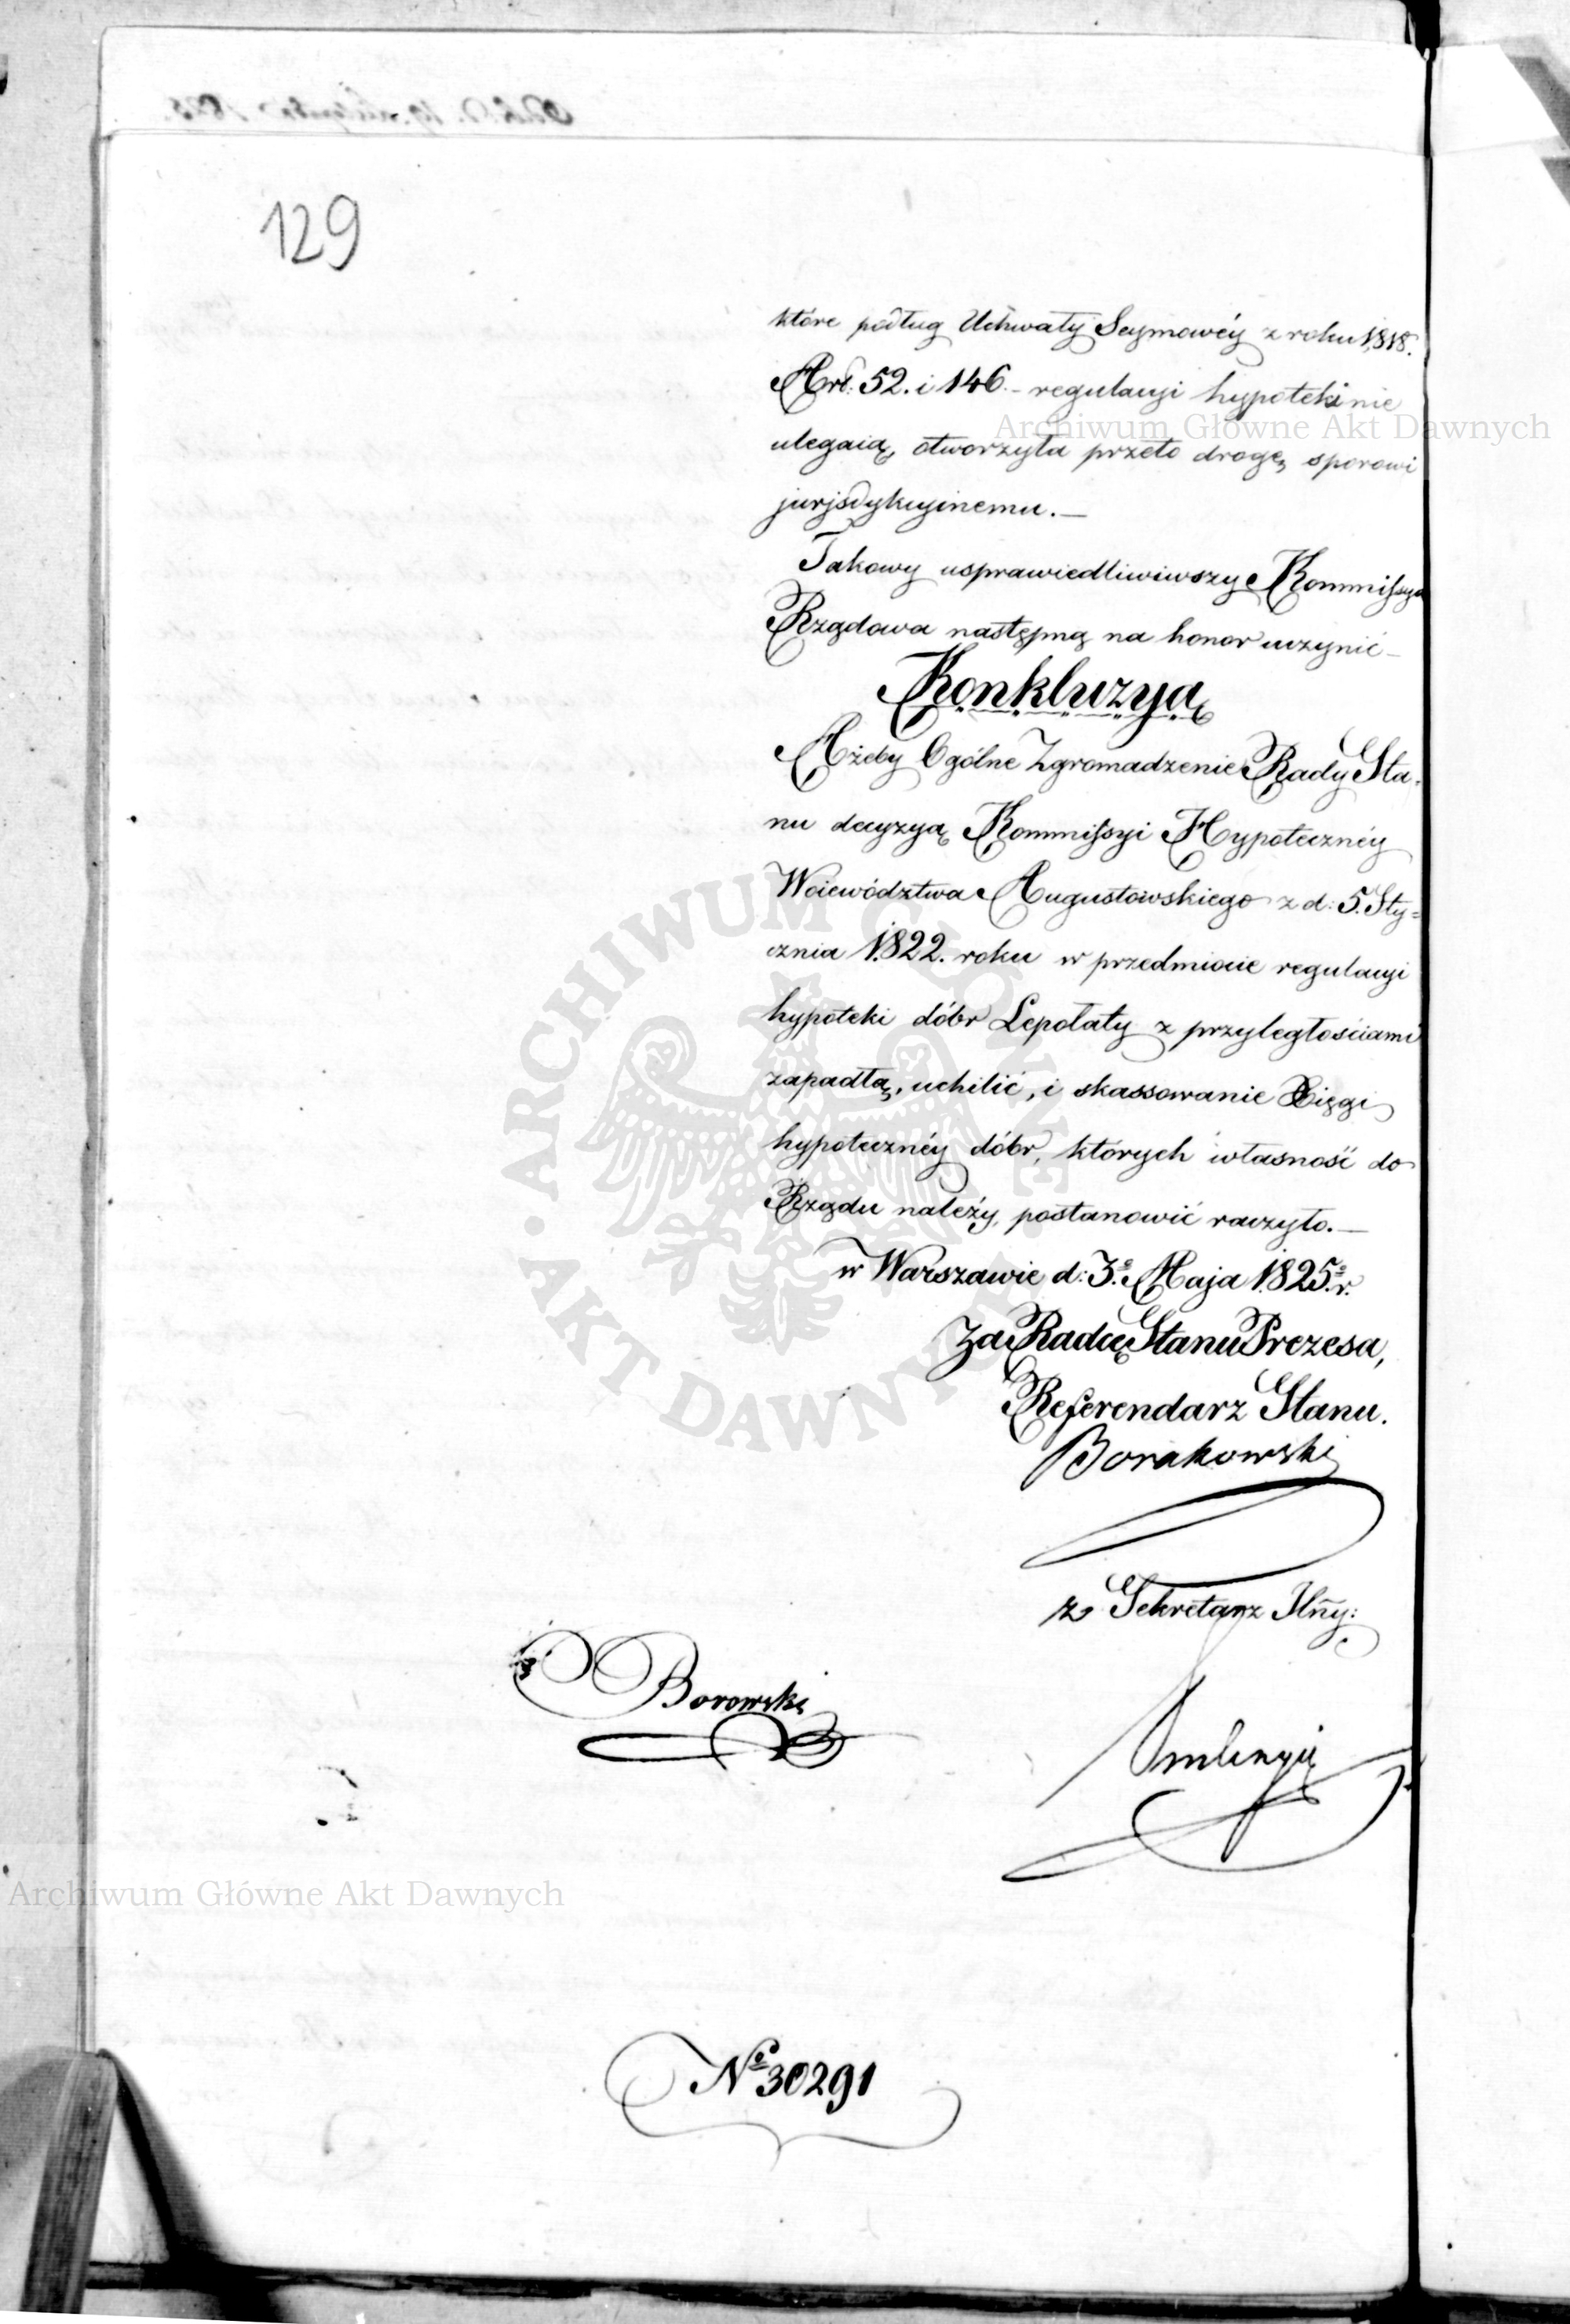 129
które podług Uchwały Seymowéy z roku 1818.
Art: 52. i 146. – regulacyi hypoteki nie
ulegaią, otworzyła przeto drogę sporowi
jurisdykcyinemu. —
Takowy usprawiedliwiwszy Kommissya
Rządowa następną na honor uczynić –
Konkluzyą
Ażeby Ogólne Zgromadzenie Rady Sta-
nu decyzyą Kommissyi Hypoteczney
Woiewództwa Augustowskiego z d: 5. Sty=
cznia 1822. roku w przedmiocie regulacyi
hypoteki dóbr Lepołaty z przyległościami
zapadłą, uchilić, i skassowanie Xięgi
hypotecznéy dóbr, których własność do
Rządu należy, postanowić raczyło. —
w Warszawie d: 3.º Maja 1825.º r.
Za Radcę Stanu Prezesa,
Referendarz Stanu.
Borakowski
z Sekretarz Jlny:
Borowski
Nº 30291
Archiwum Główne Akt Dawnych
Archiwum Główne Akt Dawnych
ARCHIWUM GŁÓWNE AKT DAWNYCH